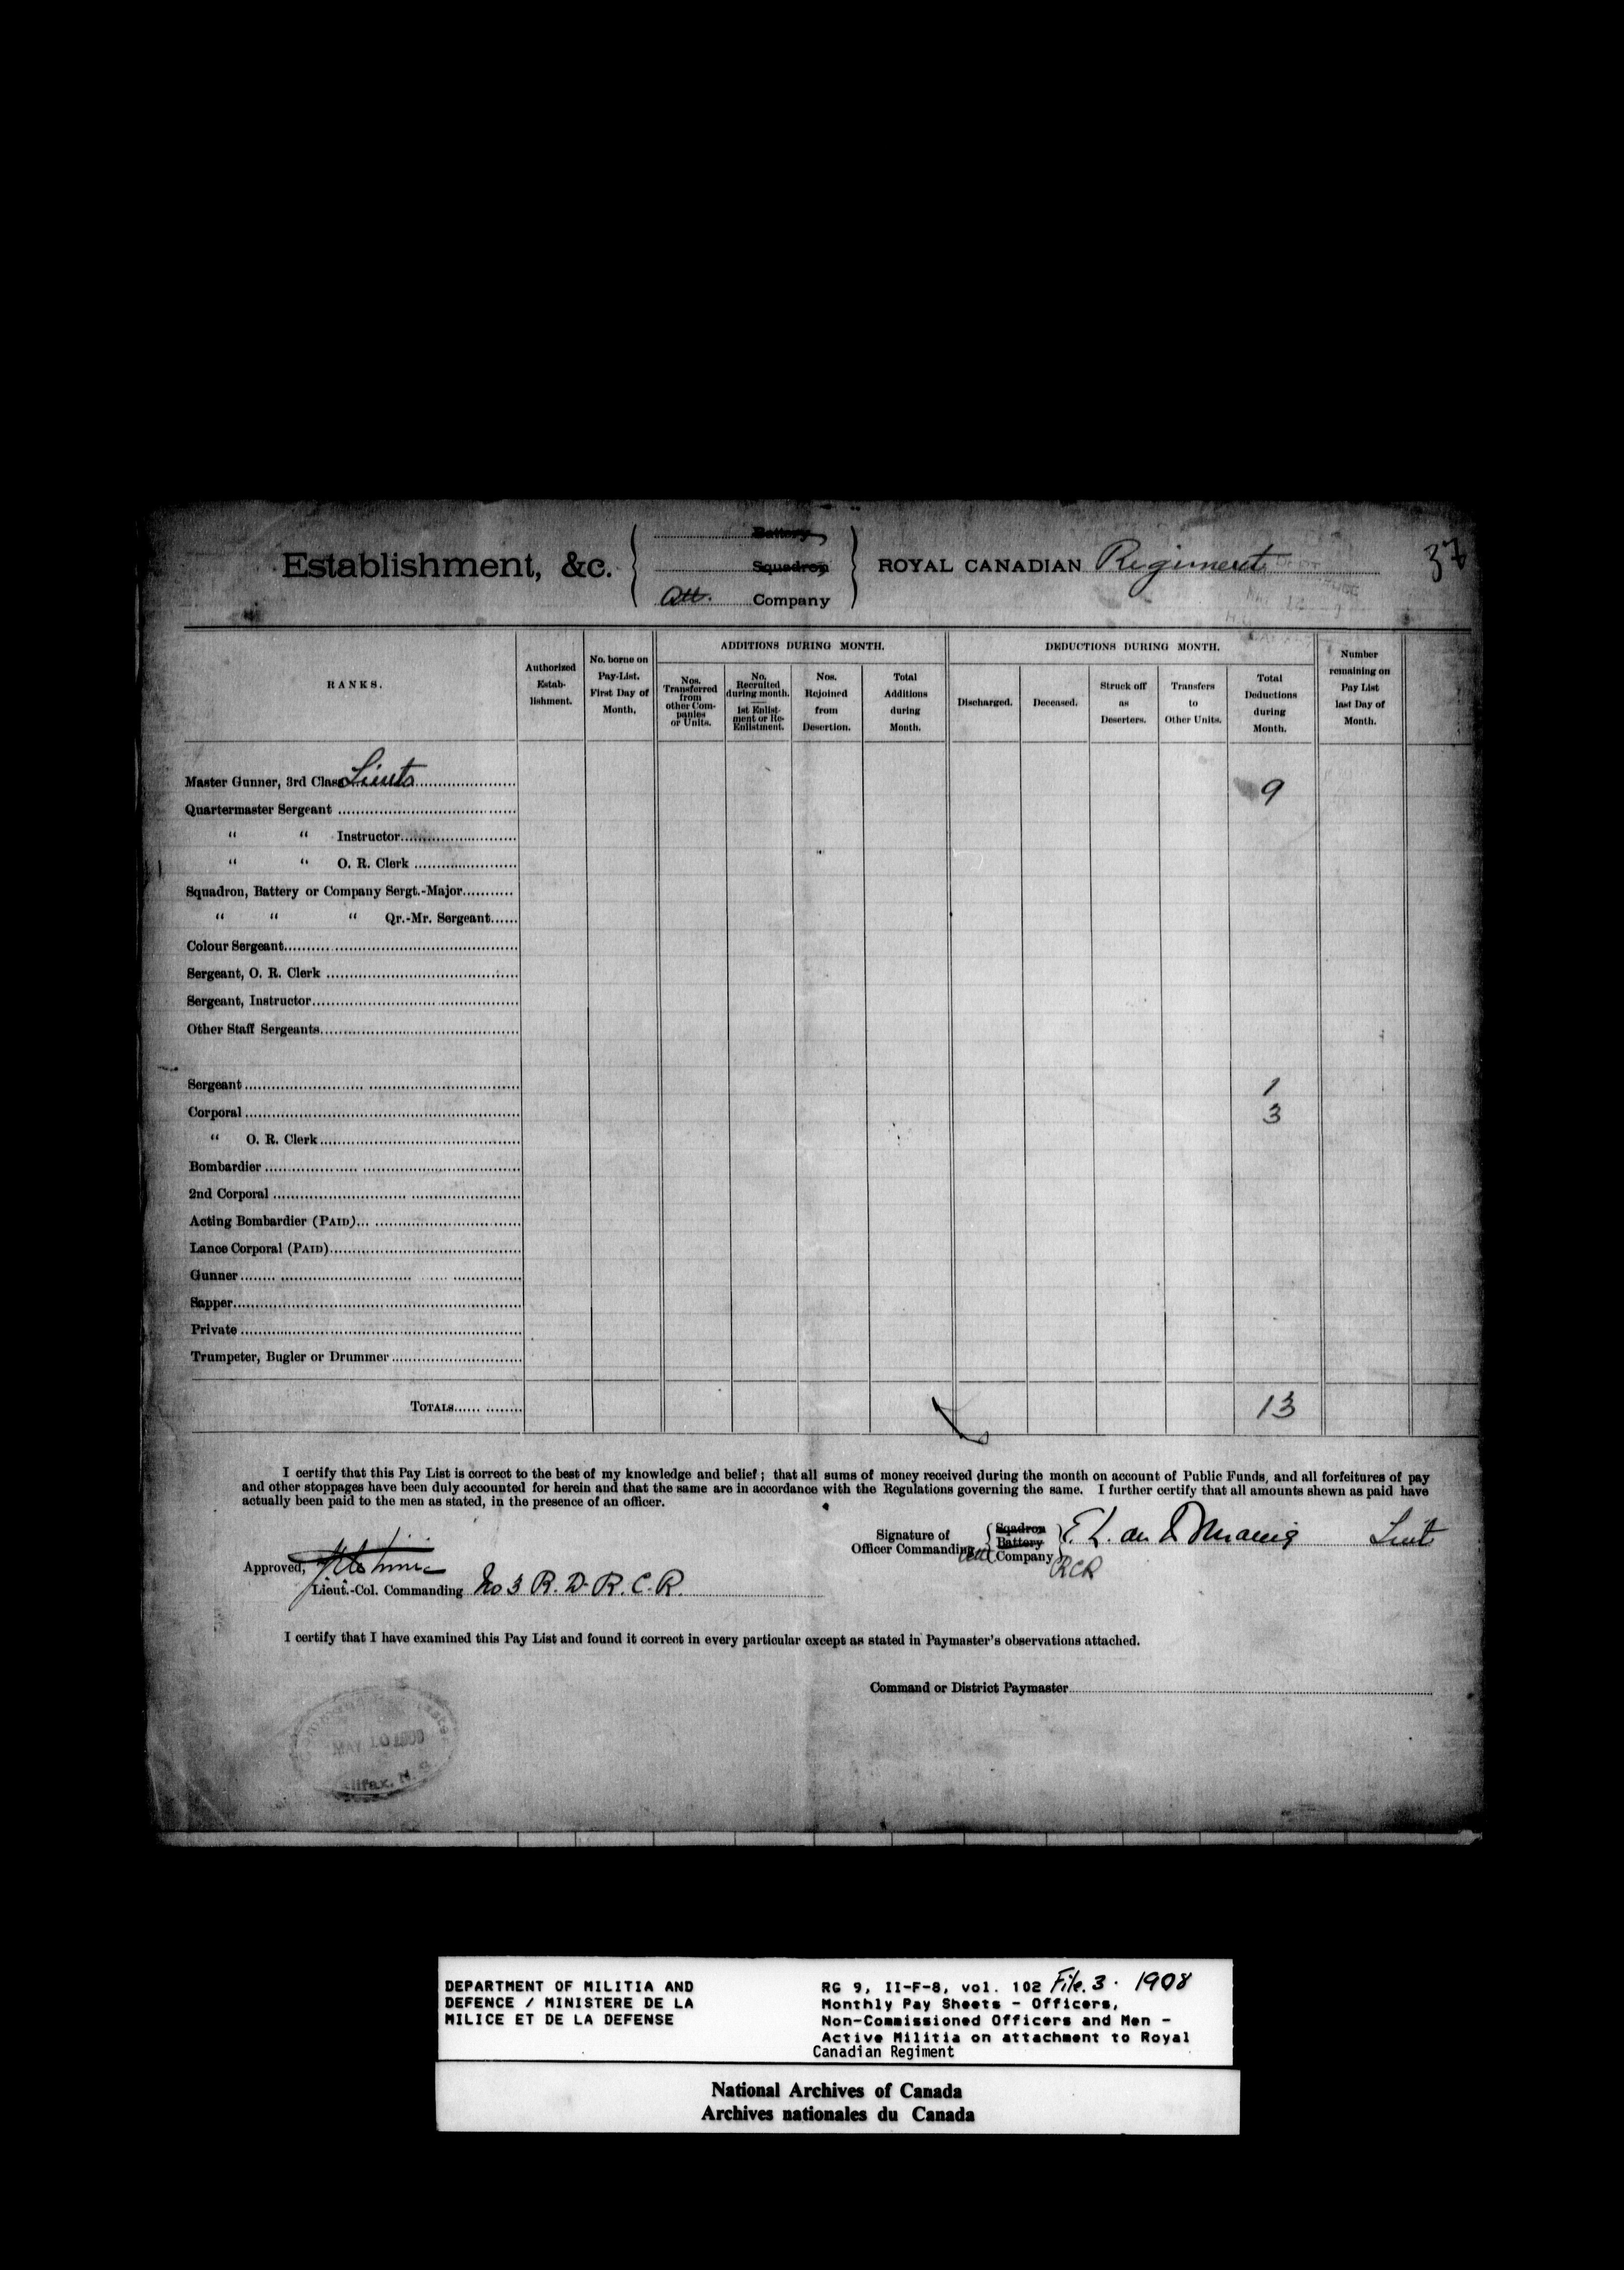 Battery
Establishment, &c. Squadron ROYAL CANADIAN Regiment 37
Att. Company
RANKS.
Authorized Estab- lishment.
No. borne on Pay-List. First Day of Month.
ADDITIONS DURING MONTH.
Nos. Transferred from other Com- panies or Units.
No. Recruited during month. 1st Enlist- ment or Re- Enlistment.
Nos. Rejoined from Desertion.
Total Additions during Month.
DEDUCTIONS DURING MONTH.
Discharged.
Deceased.
Struck off as Deserters.
Transfers to Other Units.
Total Deductions during Month.
Number remaining on Pay List last Day of Month.
Master Gunner, 3rd Class Lieuts 9
Quartermaster Sergeant
" " Instructor
" " O. R. Clerk
Squadron, Battery or Company Sergt.-Major
" " " Qr.-Mr. Sergeant
Colour Sergeant
Sergeant, O. R. Clerk
Sergeant, Instructor
Other Staff Sergeants
Sergeant 1
Corporal 3
" O. R. Clerk
Bombardier
2nd Corporal
Acting Bombardier (PAID)
Lance Corporal (PAID)
Gunner
Sapper
Private
Trumpeter, Bugler or Drummer
TOTALS 13
I certify that this Pay List is correct to the best of my knowledge and belief; that all sums of money received during the month on account of Public Funds, and all forfeitures of pay
and other stoppages have been duly accounted for herein and that the same are in accordance with the Regulations governing the same. I further certify that all amounts shewn as paid have
actually been paid to the men as stated, in the presence of an officer.
Signature of Officer Commanding
Sqadron
Battery
Att Company
Lieut
RCR
Approved,
Lieut.-Col. Commanding No 3 R. D. R. C. R.
I certify that I have examined this Pay List and found it correct in every particular except as stated in Paymaster's observations attached.
Command or District Paymaster
MAY 10
DEPARTMENT OF MILITIA AND
DEFENCE / MINISTERE DE LA
MILICE ET DE LA DEFENSE
RG 9, II-F-8, vol. 102 File. 3. 1908
Monthly Pay Sheets - Officers,
Non-Commissioned Officers and Men -
Active Militia on attachment to Royal
Canadian Regiment
National Archives of Canada
Archives nationales du Canada